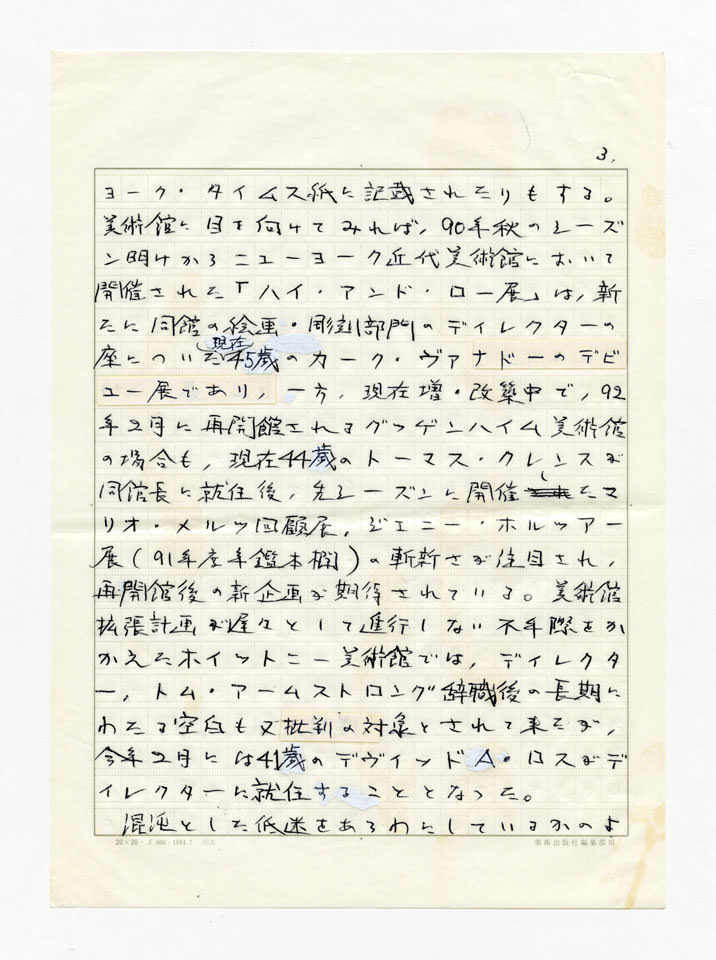 3.
ョーク・タイムス紙に記載されたりもする。
美術館に目を向けてみれば,90年秋のシーズ
ン明けからニューヨーク近代美術館において
開催された「ハイ・アンド・ロー展」は,新
たに同館の絵画・彫刻部門のディレクターの
現在
座についた45歳のカーク・ヴァナドーのデビ
ュー展であり,一方,現在増・改築中で,92
年2月に再開館されるグッゲンハイム美術館
の場合も,現在44歳のトーマス・クレンスが
し
同館長に就任後,先シーズンに開催たマ
リオ・メルツ回顧展,ジェニー・ホルツアー
展(91年度年鑑本欄)の斬新さが注目され,
再開館後の新企画が期待されている。美術館
拡張計画が遅々として進行しない不手際をか
かえたホイットニー美術館では,ディレクタ
ー,トム・アームストロング辞職後の長期に
わたる空白も又批判の対象とされて来たが,
今年2月には41歳のデヴィッドA・ロスがデ
ィレクターに就任することとなった。
混沌とした低迷をあらわにしているかのよ
20×20・5,000・1984.7
美術出版社編集部用